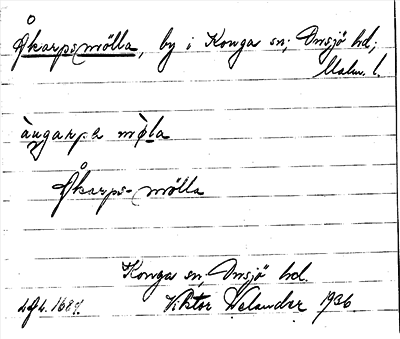 Åkarpsmölla, by i Konga sn; Onsjö hd;
Malm. l.
Åkarps-mölla
Konga sn, Onsjö hd.
Viktor Welander 1936